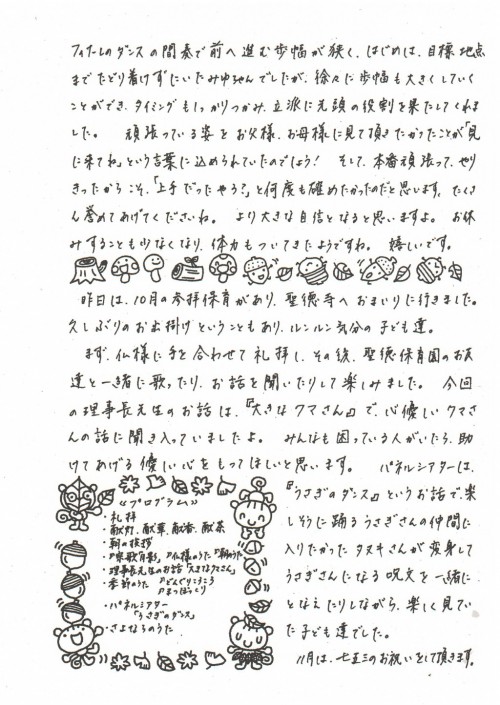 フィナーレのダンスの間奏で前へ進む歩幅が狭く、はじめは、目標地点
までたどり着けずにいたみゆちゃんでしたが、徐々に歩幅も大きくしていく
ことができ、タイミングもしっかりつかみ、立派に先頭の役割を果たしてくれま
した。 頑張っている姿をお父様、お母様に見て頂きたかったことが「見
に来てね」という言葉に込められていたのでしょう! そして、本番頑張って、やり
きったからこそ、「上手だったやろ?」と何度も確めたかったのだと思います。たくさ
ん誉めてあげてくださいね。 より大きな自信となると思いますよ。 お休
みすることも少なくなり、体力もついてきたようですね。 嬉しいです。
昨日は、10月の参拝保育があり、聖徳寺へおまいりに行きました。
久しぶりのお出掛けということもあり、ルンルン気分の子ども達。
まず、仏様に手を合わせて礼拝し、その後、聖徳保育園のお友
達と一緒に歌ったり、お話を聞いたりして楽しみました。 今回
の理事長先生のお話は、『大きなクマさん』で、心優しいクマさ
んの話に聞き入っていましたよ。 みんなも困っている人がいたら、助
けてあげる優しい心をもってほしいと思います。 パネルシアターは、
『うさぎのダンス』というお話で、楽
しそうに踊るうさぎさんの仲間に
入りたかったタヌキさんが変身して
うさぎさんになる呪文を一緒に
となえたりしながら、楽しく見てい
た子ども達でした。
11月は、七五三のお祝いをして頂きます。
《プログラム》
・礼拝
・献灯、献華、献香、献茶
・朝の挨拶
・『宗歌』『仏様のうた』『朝のうた』
・理事長先生のお話『大きなクマさん』
・季節のうた『どんぐりころころ
『まつぼっくり
・パネルシアター
『うさぎのダンス』
・さよならのうた